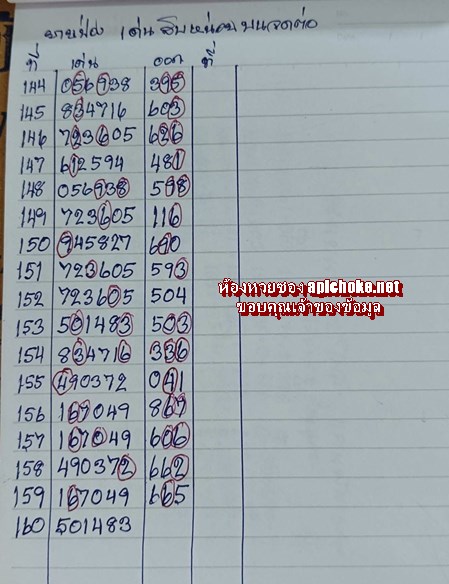 หายซอง เด่นสิบหน่วย บนจดต่อ
ที่ เด่น ออก ที่
144 056938 395
145 834716 603
146 723605 626
147 612594 481
148 056938 598
149 723605 116
150 945827 690
151 723605 593
152 723605 504
153 501483 503
154 834716 336
155 490372 041
156 167049 867
157 167049 606
158 490372 662
159 167049 665
160 501483
ห้องหวยซอง apichoke.net
ขอบคุณเจ้าของข้อมูล